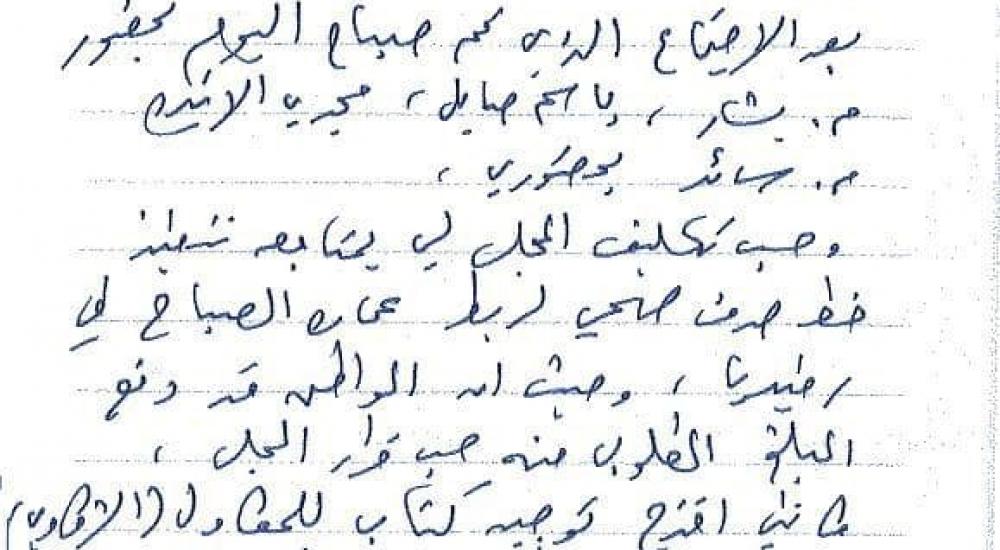 بعد الاجتماع الذي تم صباح اليوم بحضور
م. بشار ، باسم صايل ، مجدي
م. سائد بحضوري ،
وحسب تكليف المجلس لي بمتابعة تنفيذ
خط صرف صحي لربط عمارة الصباح في
رفيديا ، وحيث ان المواطن قد دفع
المبلغ المطلوب منه حسب قرار المجلس ،
فانني اقترح توجيه كتاب للمقاول